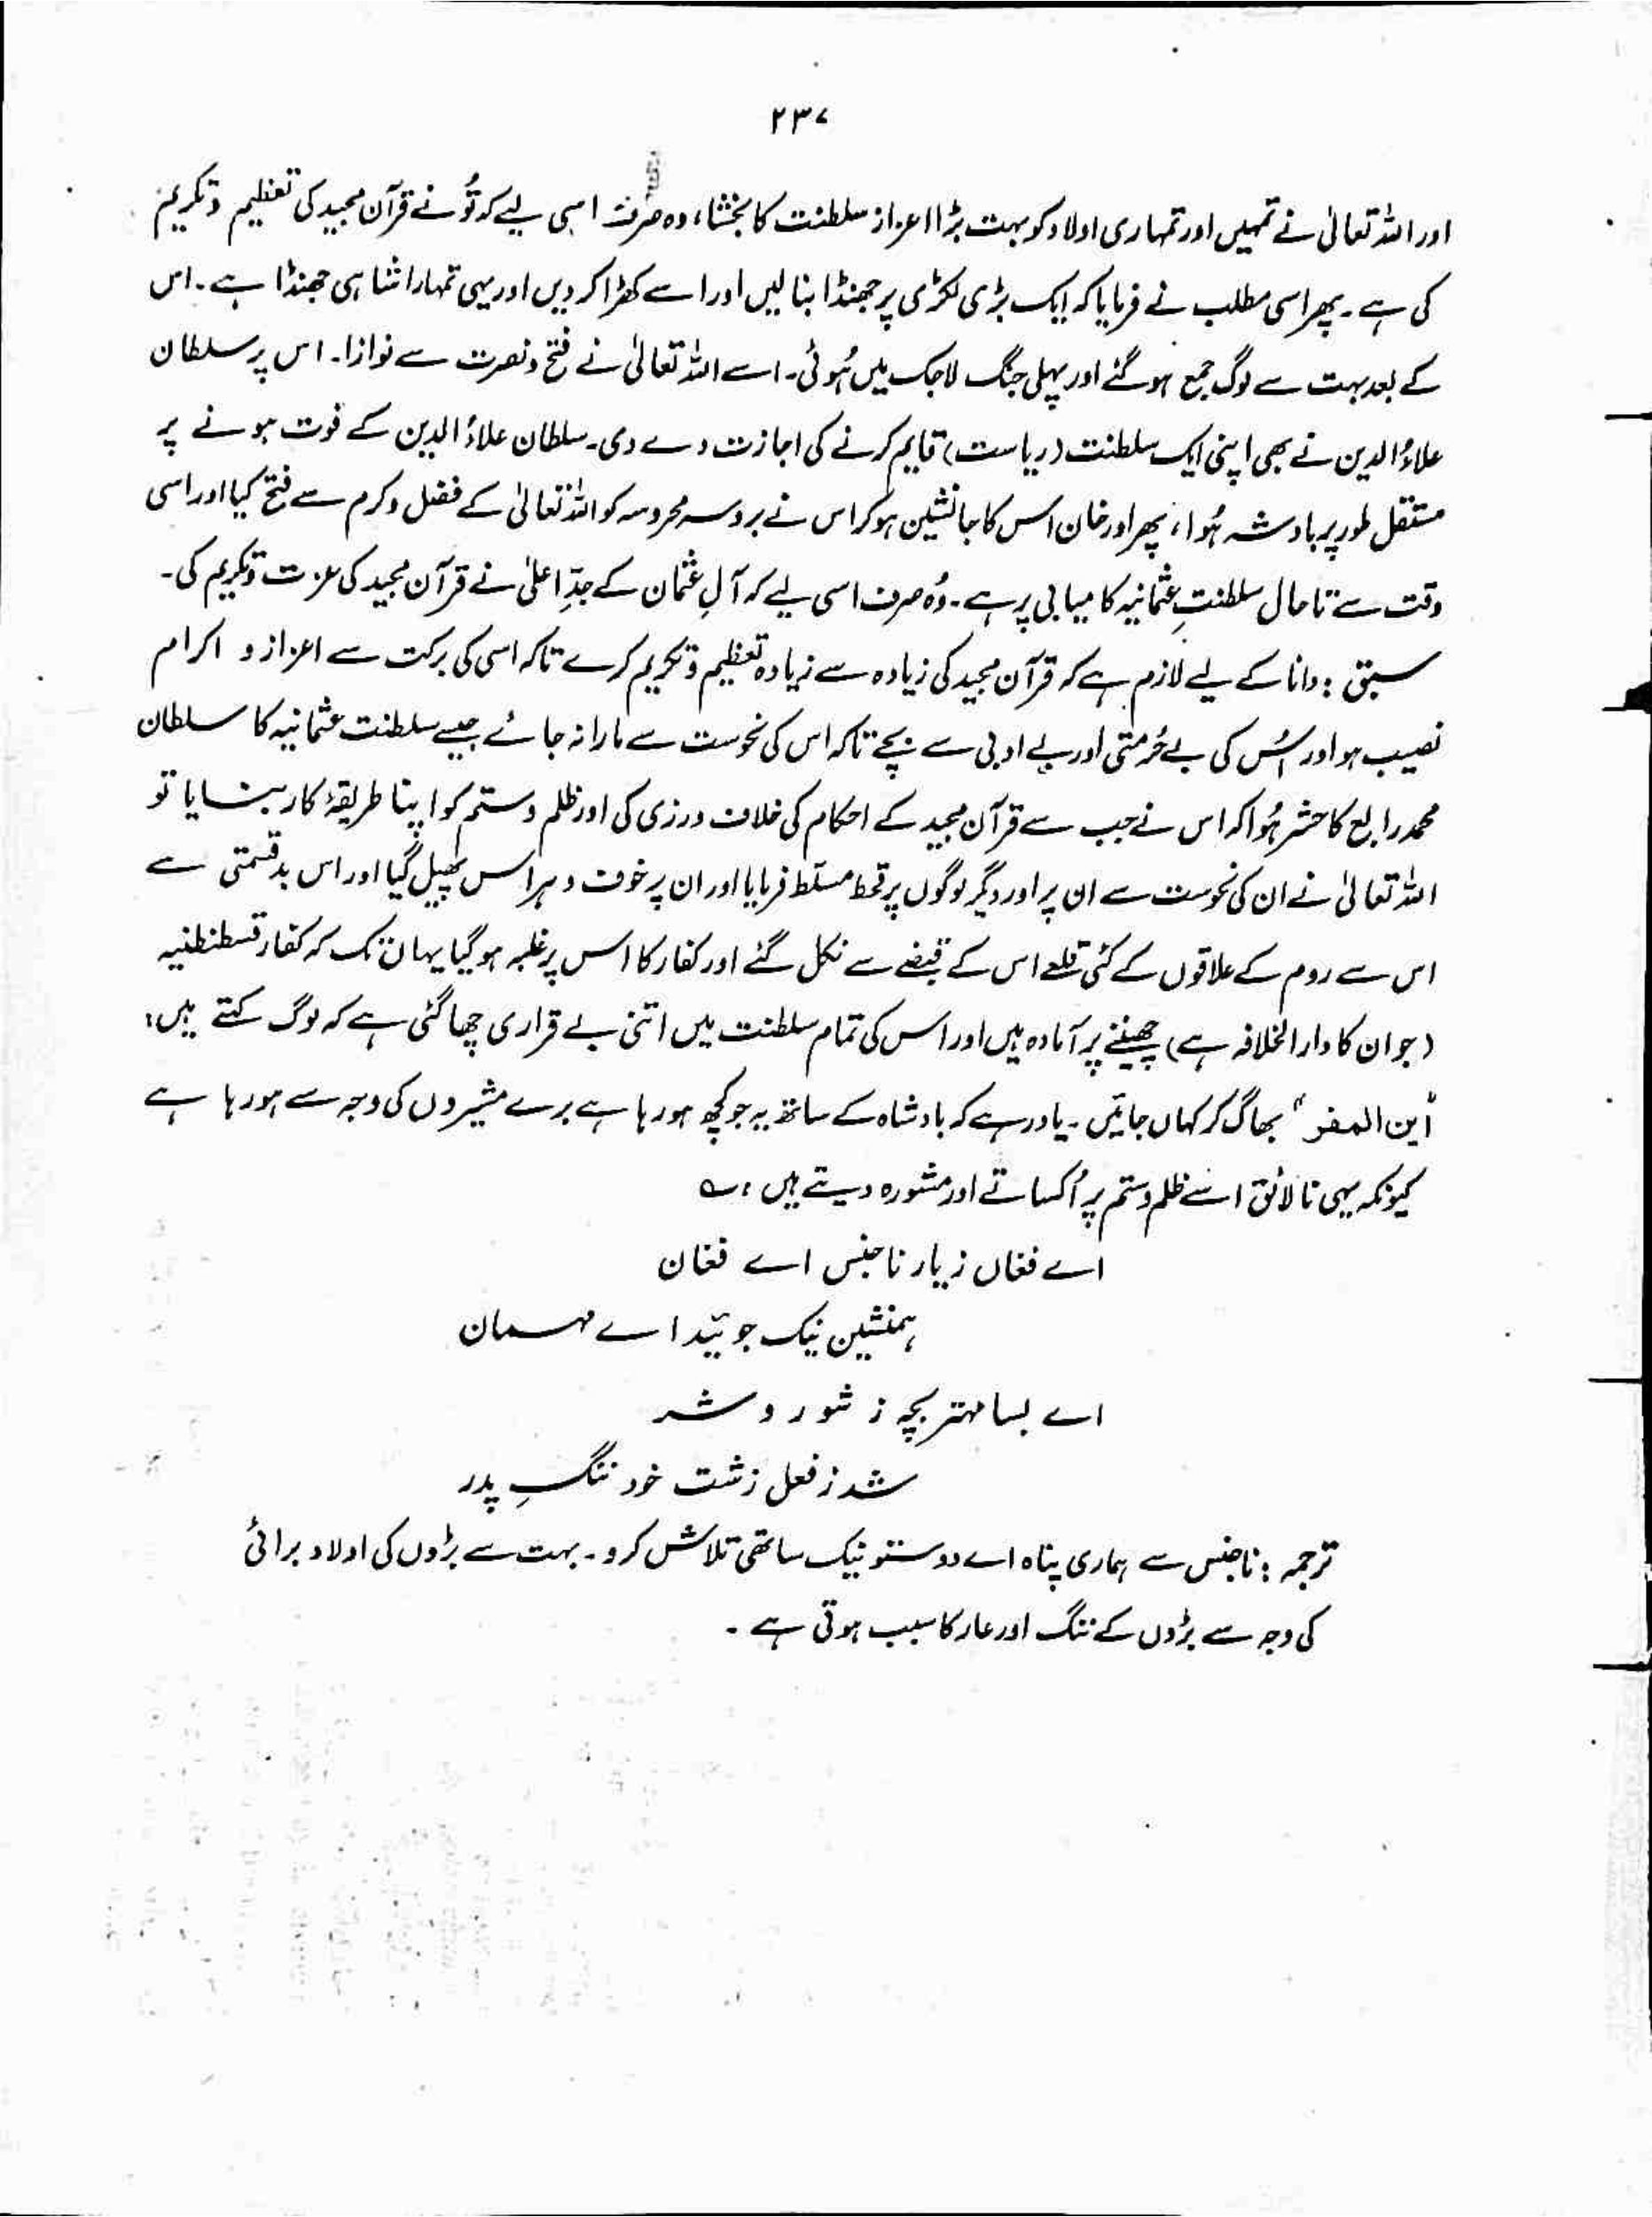 ۲۳۷
اور اللہ تعالیٰ نے تمہیں اور تمہاری اولاد کو بہت بڑا اعزاز سلطنت کا بخشا، وہ صرف اسی لیے کہ تُو نے قرآن مجید کی تعظیم و تکریم
کی ہے۔ پھر اسی مطلب نے فرمایا کہ ایک بڑی لکڑی پر جھنڈا بنا لیں اور اسے کھڑا کر دیں اور یہی تمہارا شاہی جھنڈا ہے۔ اس
کے بعد بہت سے لوگ جمع ہو گئے اور پہلی جنگ لاجک میں ہُوئی۔ اسے اللہ تعالیٰ نے فتح و نصرت سے نوازا۔ اس پر سلطان
علاؤ الدین نے بھی اپنی ایک سلطنت (ریاست) قایم کرنے کی اجازت دے دی۔ سلطان علاؤ الدین کے فوت ہونے پر
مستقل طور پر بادشہ ہُوا، پھر اورخان اس کا جانشین ہو کر اس نے بروسہ محروسہ کو اللہ تعالیٰ کے فضل و کرم سے فتح کیا اور اسی
وقت سے تا حال سلطنتِ عثمانیہ کامیابی پر ہے۔ وُہ صرف اسی لیے کہ آلِ عثمان کے جدِّ اعلیٰ نے قرآن مجید کی عزت و تکریم کی۔
سبق : دانا کے لیے لازم ہے کہ قرآن مجید کی زیادہ سے زیادہ تعظیم و تکریم کرے تاکہ اسی کی برکت سے اعزاز و اکرام
نصیب ہو اور اُس کی بے حُرمتی اور بے ادبی سے بچے تاکہ اس کی نحوست سے مارا نہ جائے جیسے سلطنت عثمانیہ کا سلطان
محمد رابع کا حشر ہُوا کہ اس نے جب سے قرآن مجید کے احکام کی خلاف ورزی کی اور ظلم و ستم کو اپنا طریقۂ کار بنایا تو
اللہ تعالیٰ نے ان کی نحوست سے ان پر اور دیگر لوگوں پر قحط مسلّط فرمایا اور ان پر خوف و ہراس پھیل گیا اور اس بدقسمتی سے
اس سے روم کے علاقوں کے کئی قلعے اس کے قبضے سے نکل گئے اور کفار کا اس پر غلبہ ہو گیا یہاں تک کہ کفار قسطنطنیہ
(جو ان کا دارالخلافہ ہے) چھیننے پر آمادہ ہیں اور اس کی تمام سلطنت میں اتنی بے قراری چھا گئی ہے کہ لوگ کہتے ہیں:
"این المفر" بھاگ کر کہاں جائیں۔ یاد رہے کہ بادشاہ کے ساتھ یہ جو کچھ ہو رہا ہے برے مشیروں کی وجہ سے ہو رہا ہے
کیونکہ یہی نالائق اسے ظلم و ستم پر اُکساتے اور مشورہ دیتے ہیں، ؎
اے فغاں زیار ناجنس اے فغان
ہمنشین نیک جوئید اے مہمان
اے بسا مہتر بچہ ز شور و شر
شد ز فعل زشت خود ننگِ پدر
ترجمہ : ناجنس سے ہماری پناہ اے دوستو نیک ساتھی تلاش کرو۔ بہت سے بڑوں کی اولاد برائی
کی وجہ سے بڑوں کے ننگ اور عار کا سبب ہوتی ہے۔